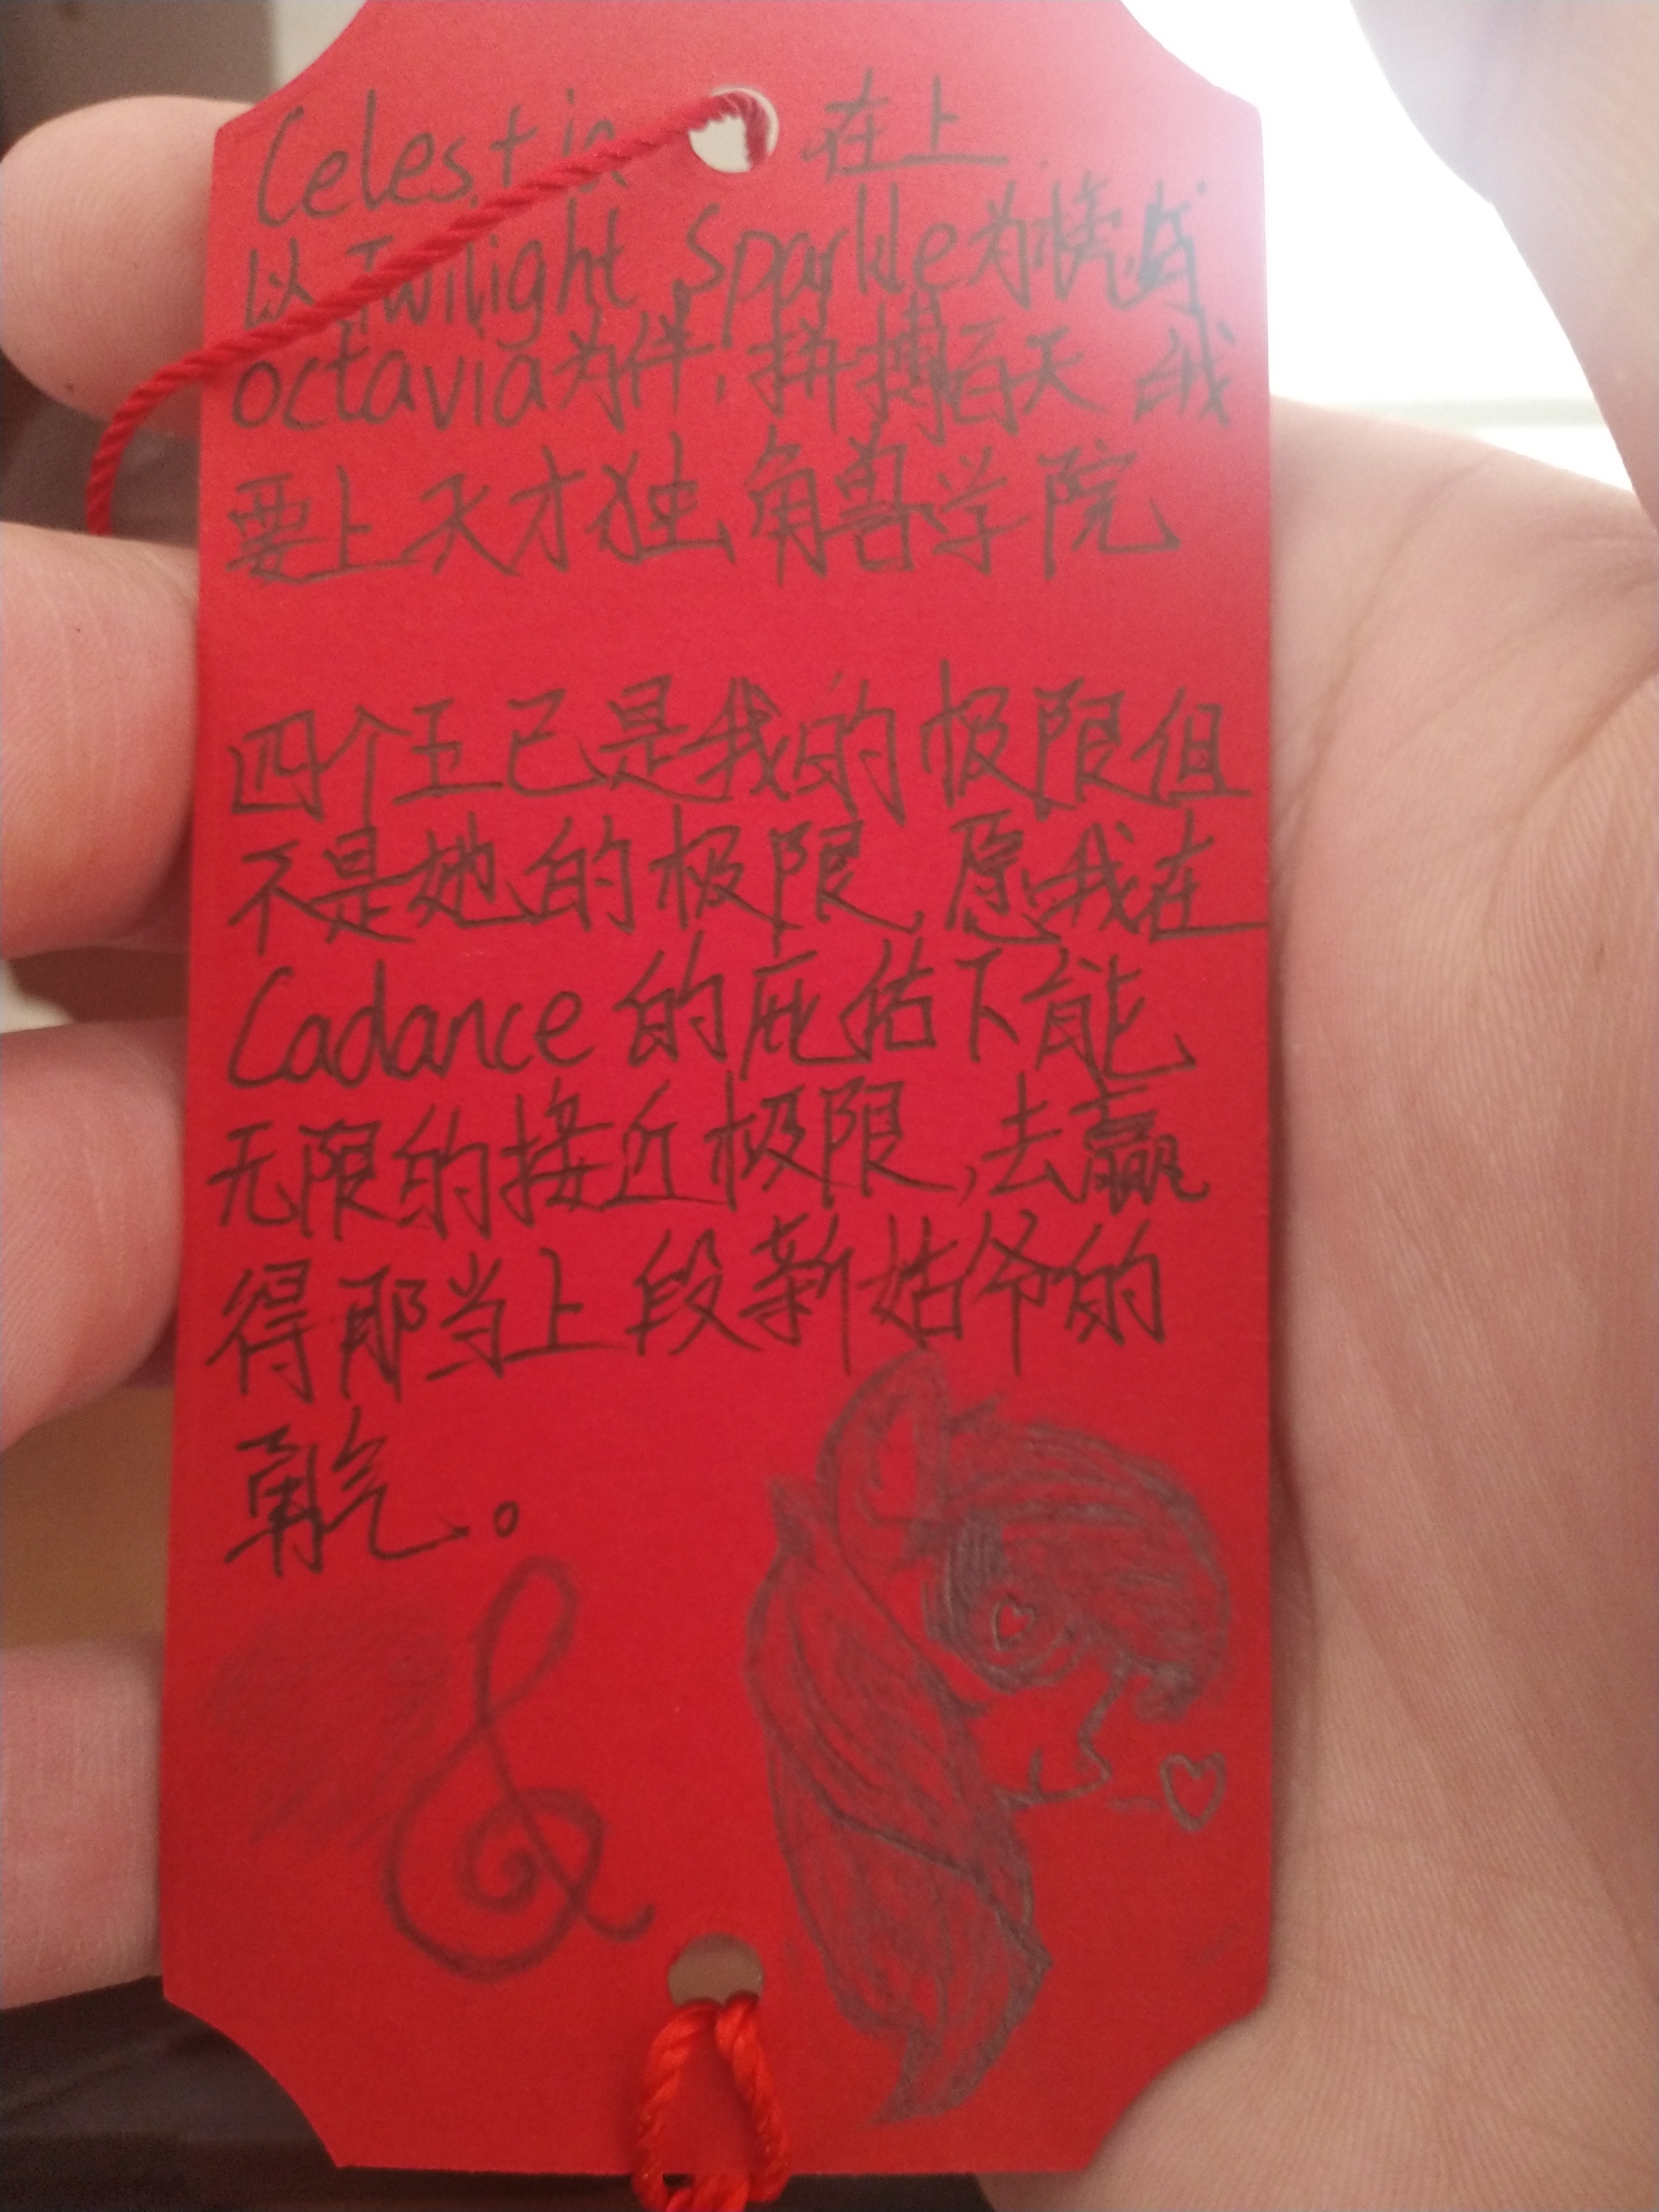 Celestia 在上
以 Twilight Sparkle为榜与
octavia为伴,拼搏百天 我
要上天才独角兽学院
四个五已是我的极限但
不是她的极限,愿我在
Cadance的庇佑下能
无限的接近极限,去赢
得那当上段新姑爷的
勇气。